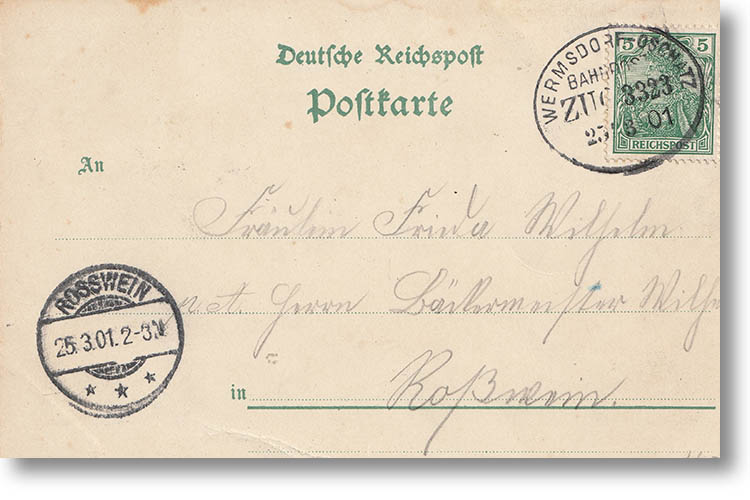 Deutsche Reichspost
Postkarte
WERMSDORF-OSCHATZ
BAHNPOST
ZUG 3323
25 3 01
5 5
REICHSPOST
An
Fräulein Frieda Wilhelm
Herrn Bäckermeister Wilhe
ROSSWEIN
25.3.01.2-3N
in Roßwein.